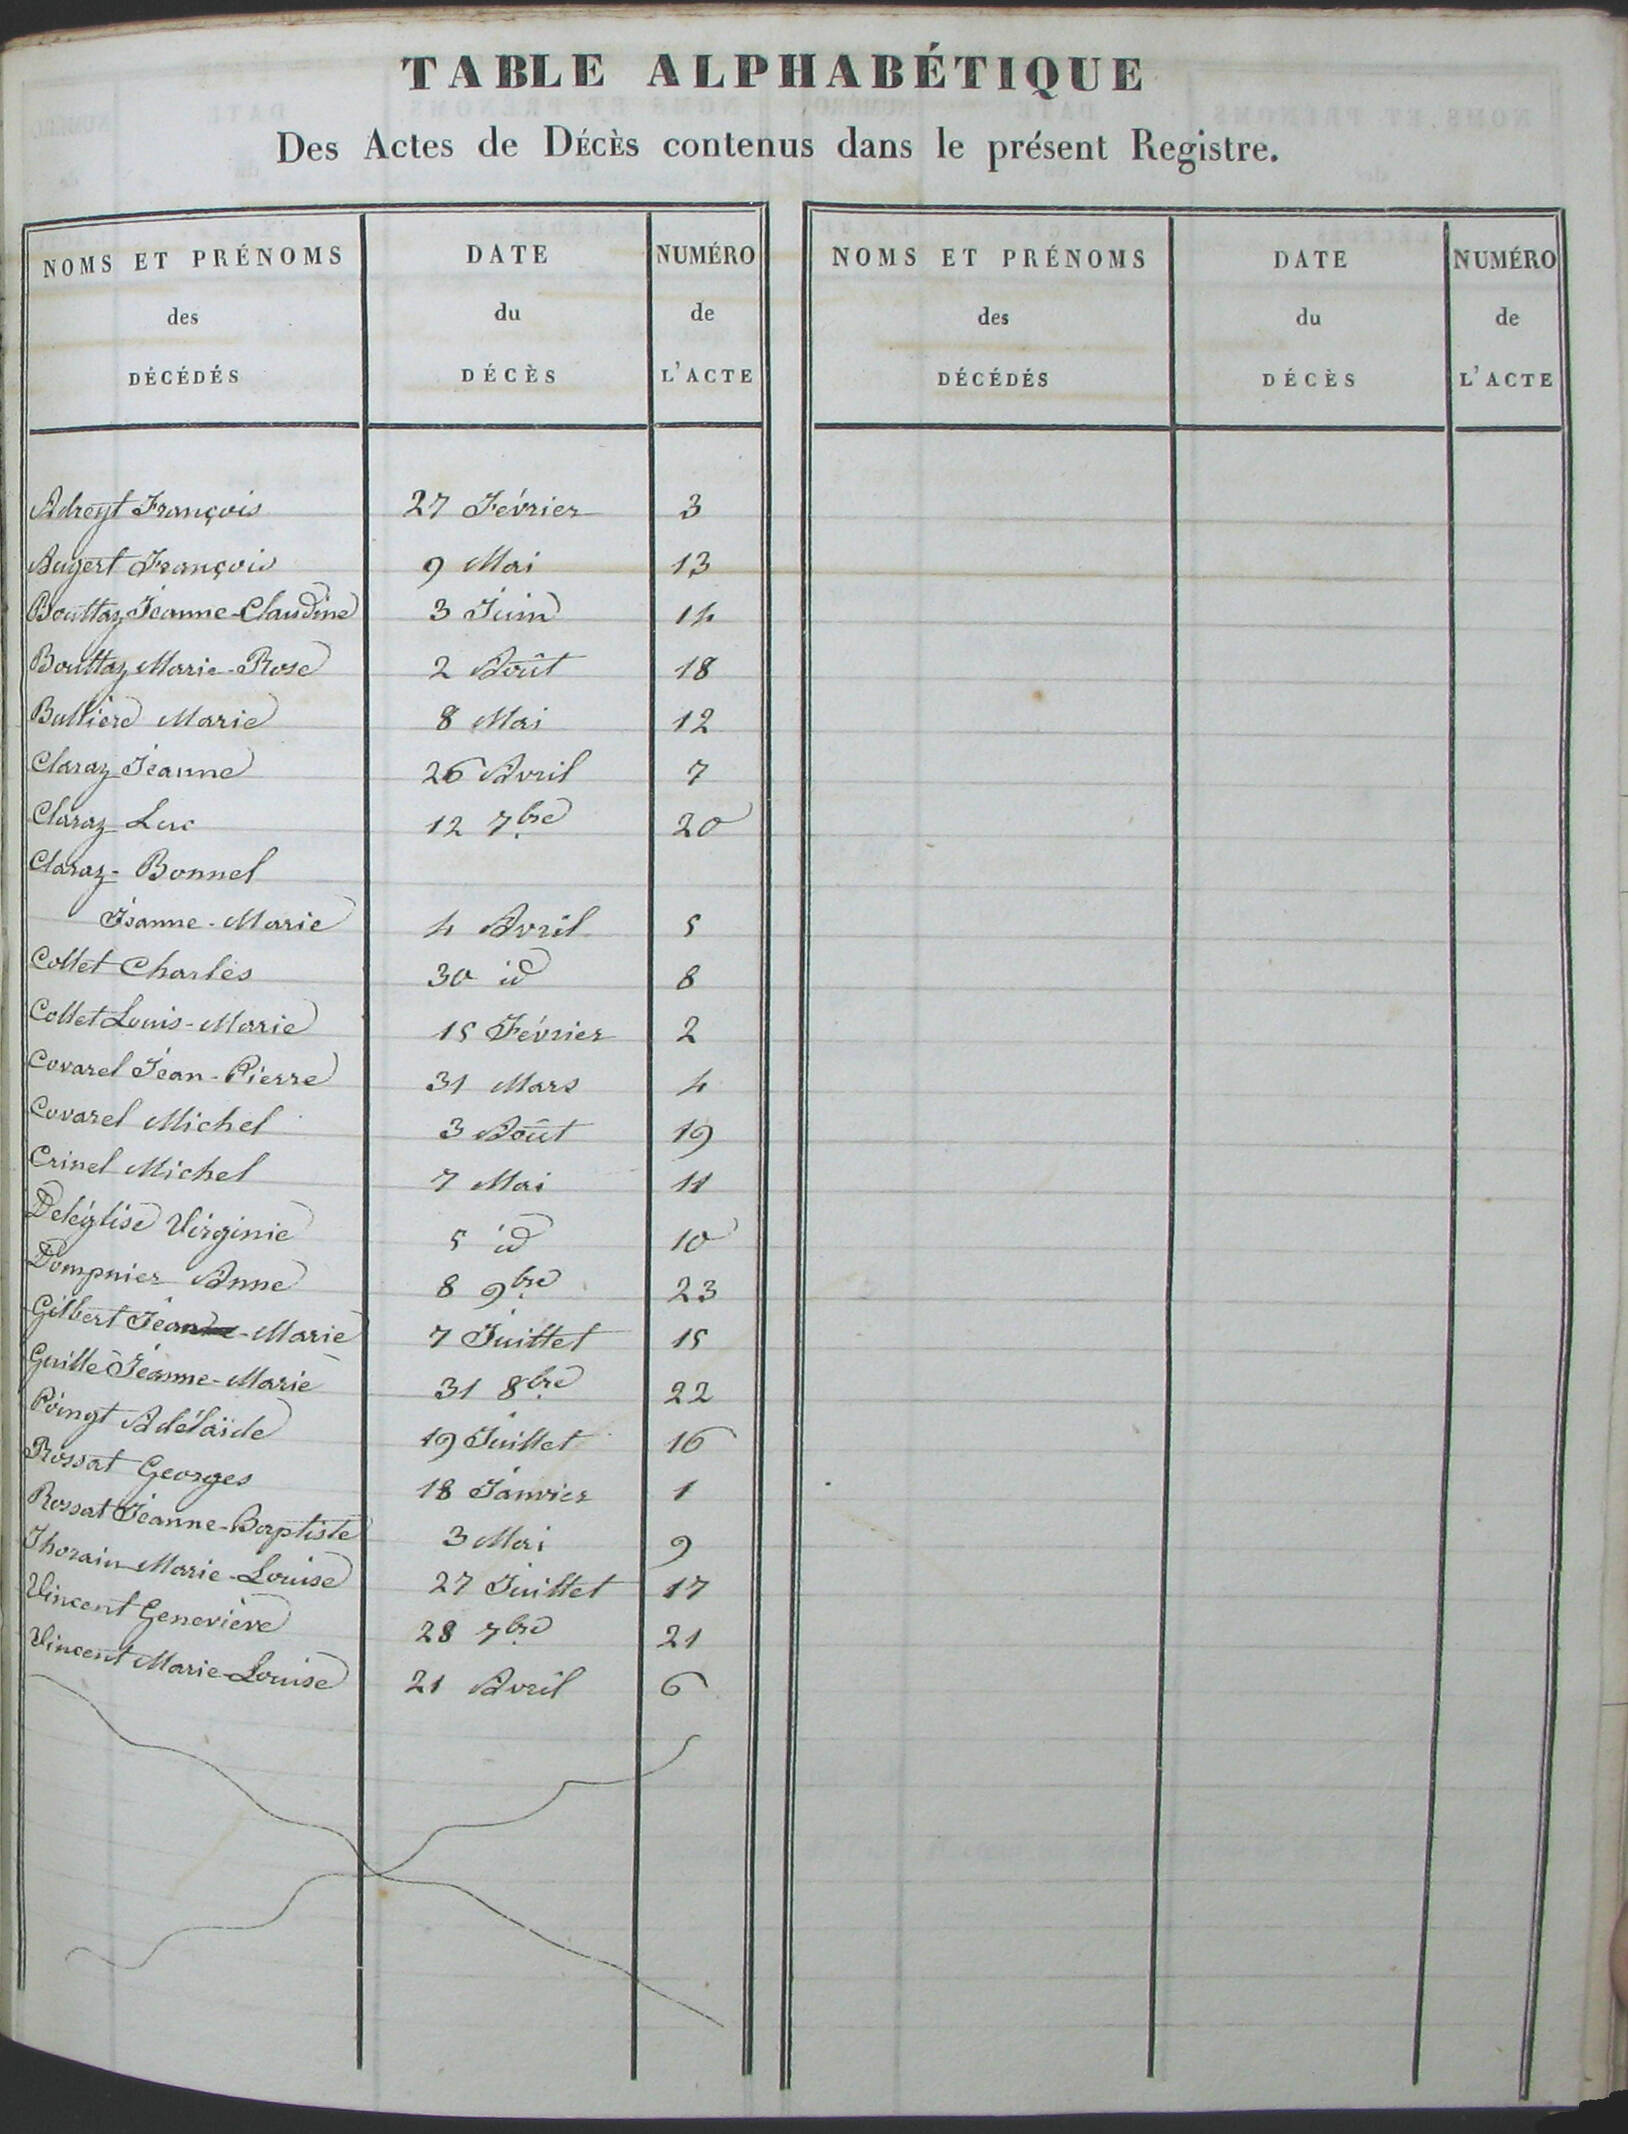 TABLE ALPHABÉTIQUE
Des Actes de DÉCÈS contenus dans le présent Registre.
NOMS ET PRÉNOMS des DÉCÉDÉS DATE du DÉCÈS NUMÉRO de L'ACTE
NOMS ET PRÉNOMS des DÉCÉDÉS DATE du DÉCÈS NUMÉRO de L'ACTE
Adreyt François 27 Février 3
Augert François 9 Mai 13
Bouttaz Jeanne-Claudine 3 Juin 14
Bouttaz Marie-Rose 2 Août 18
Buttière Marie 8 Mai 12
Claraz Jeanne 26 Avril 7
Claraz Luc 12 7bre 20
Claraz-Bonnel
Jeanne-Marie 4 Avril 5
Collet Charles 30 id 8
Collet Louis-Marie 15 Février 2
Covarel Jean-Pierre 31 Mars 4
Covarel Michel 3 Août 19
Crinel Michel 7 Mai 11
Deléglise Virginie 5 id 10
Dompnier Anne 8 9bre 23
Gilbert Jean-Marie 7 Juillet 15
Guille Jeanne-Marie 31 8bre 22
Poingt Adélaïde 19 Juillet 16
Rossat Georges 18 Janvier 1
Rossat Jeanne-Baptiste 3 Mai 9
Thorain Marie-Louise 27 Juillet 17
Vincent Geneviève 28 7bre 21
Vincent Marie-Louise 21 Avril 6